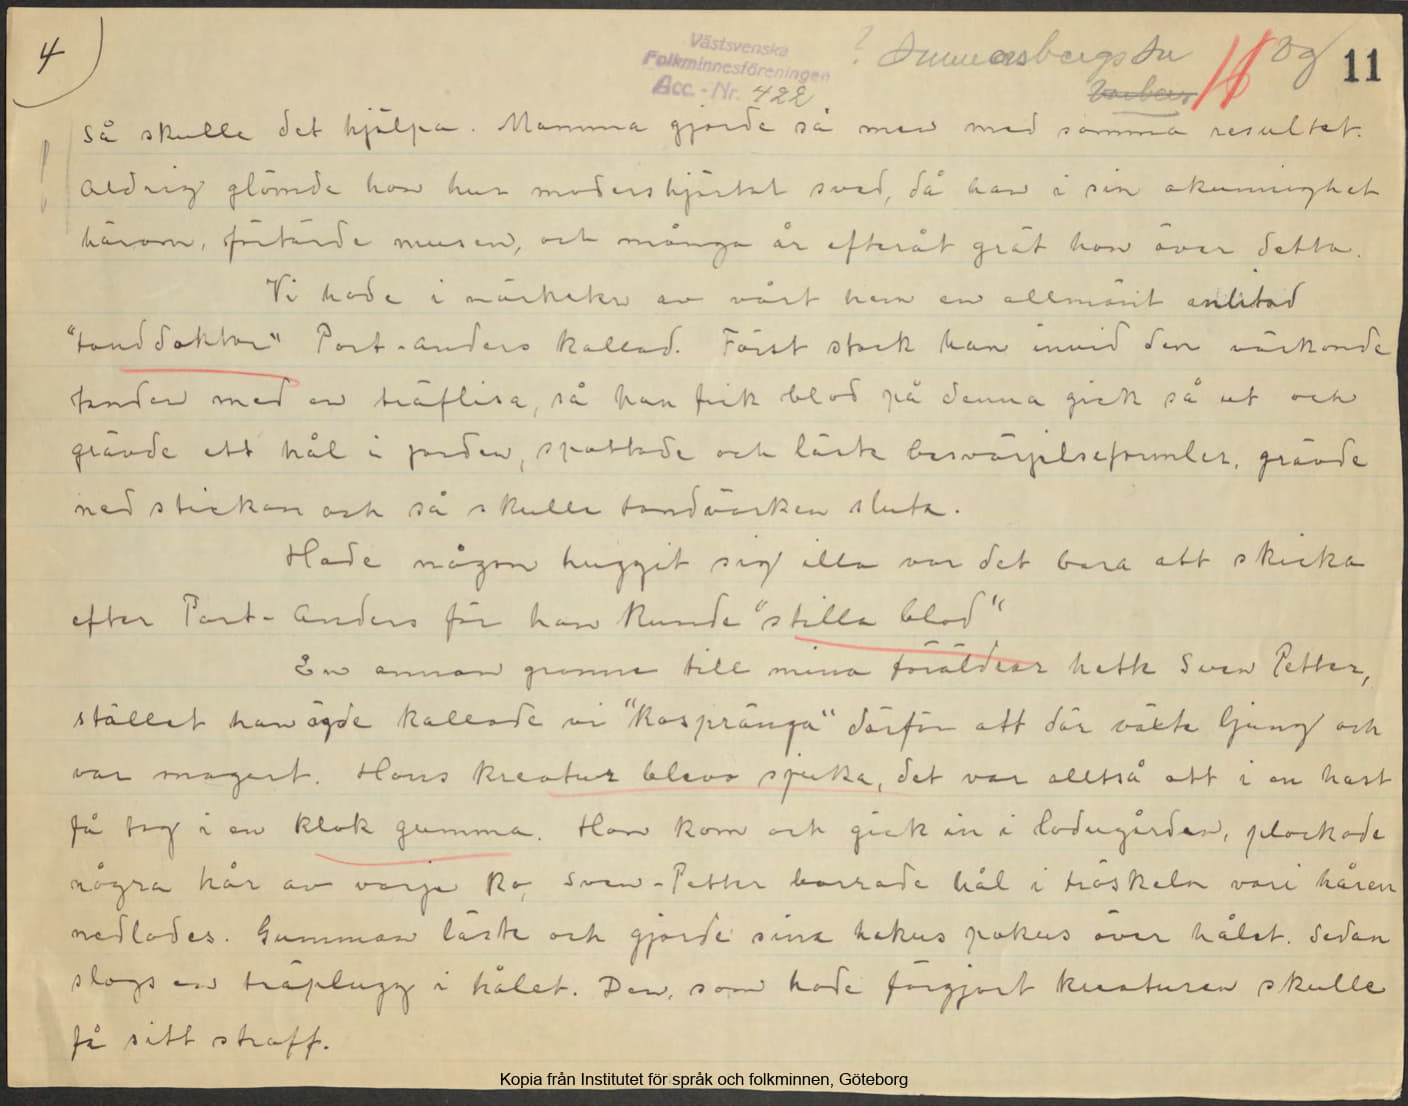 4
Västsvenska
Folkminnesföreningen
Acc.-Nr. 422
11
så skulle det hjälpa. Mamma gjorde så men med samma resultat.
Aldrig glömde hon hur modershjärtat sved, då han i sin okunnighet
härom, förtärde musen, och många år efteråt grät hon över detta.
Vi hade i närheten av vårt hem en allmänt anlitad
"tanddoktor" Port-Anders kallad. Först stack han invid den värkande
tanden med en träflisa, så han fick blod på denna gick så ut och
grävde ett hål i jorden, spottade och läste besvärjelseformler, grävde
ned stickan och så skulle tandvärken sluta.
Hade någon huggit sig illa var det bara att skicka
efter Port-Anders för han kunde "stilla blod"
En annan granne till mina föräldrar hette Sven Petter,
stället han ägde kallade vi "Kospränga" därför att där växte ljung och
var magert. Hans kreatur blevo sjuka, det var alltså att i en hast
få tag i en klok gumma. Hon kom och gick in i ladugården, plockade
några hår av varje ko, Sven-Petter borrade hål i tröskeln vari håren
nedlades. Gumman läste och gjorde sina hokus pokus över hålet. Sedan
slogs en träplugg i hålet. Den, som hade förgjort kreaturen skulle
få sitt straff.
Kopia från Institutet för språk och folkminnen, Göteborg